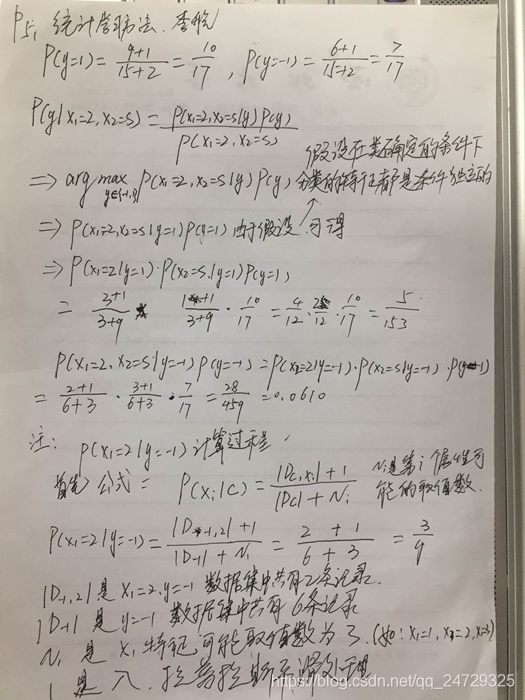 P51 统计学习方法. 李航
P(y=1) = \frac{9+1}{15+2} = \frac{10}{17} , P(y=-1) = \frac{6+1}{15+2} = \frac{7}{17}
P(y|x1=2, x2=s) = \frac{P(x1=2, x2=s|y) P(y)}{P(x1=2, x2=s)}
假设在类确定的条件下
⇒ arg max_{y∈{-1,1}} P(x1=2, x2=s|y) P(y) 分类的特征都是条件独立的
⇒ P(x1=2, x2=s|y=1) P(y=1) 由于假设 可得
⇒ P(x1=2|y=1) · P(x2=s|y=1) P(y=1)
= \frac{3+1}{3+9} · \frac{1+1}{3+9} · \frac{10}{17} = \frac{4}{12} · \frac{2}{12} · \frac{10}{17} = \frac{5}{153}
P(x1=2, x2=s|y=-1) P(y=-1) = P(x1=2|y=-1) · P(x2=s|y=-1) · P(y=-1)
= \frac{2+1}{6+3} · \frac{3+1}{6+3} · \frac{7}{17} = \frac{28}{459} = 0.0610
注: P(x1=2|y=-1) 计算过程.
首先 公式= P(xi|C) = \frac{|Dc,xi| + 1}{|Dc| + Ni} Ni是第i个属性可
能的取值数.
P(x1=2|y=-1) = \frac{|D-1,2| + 1}{|D-1| + Ni} = \frac{2 + 1}{6 + 3} = \frac{3}{9}
|D-1,2| 是 x1=2, y=-1 数据集中共有2条记录.
|D-1| 是 y=-1 数据集中共有6条记录
Ni 是 x1 特征可能取值数为3. (如: x1=1, x1=2, x1=3)
1 是 λ. 拉普拉斯平滑处理
https://blog.csdn.net/qq_24729325